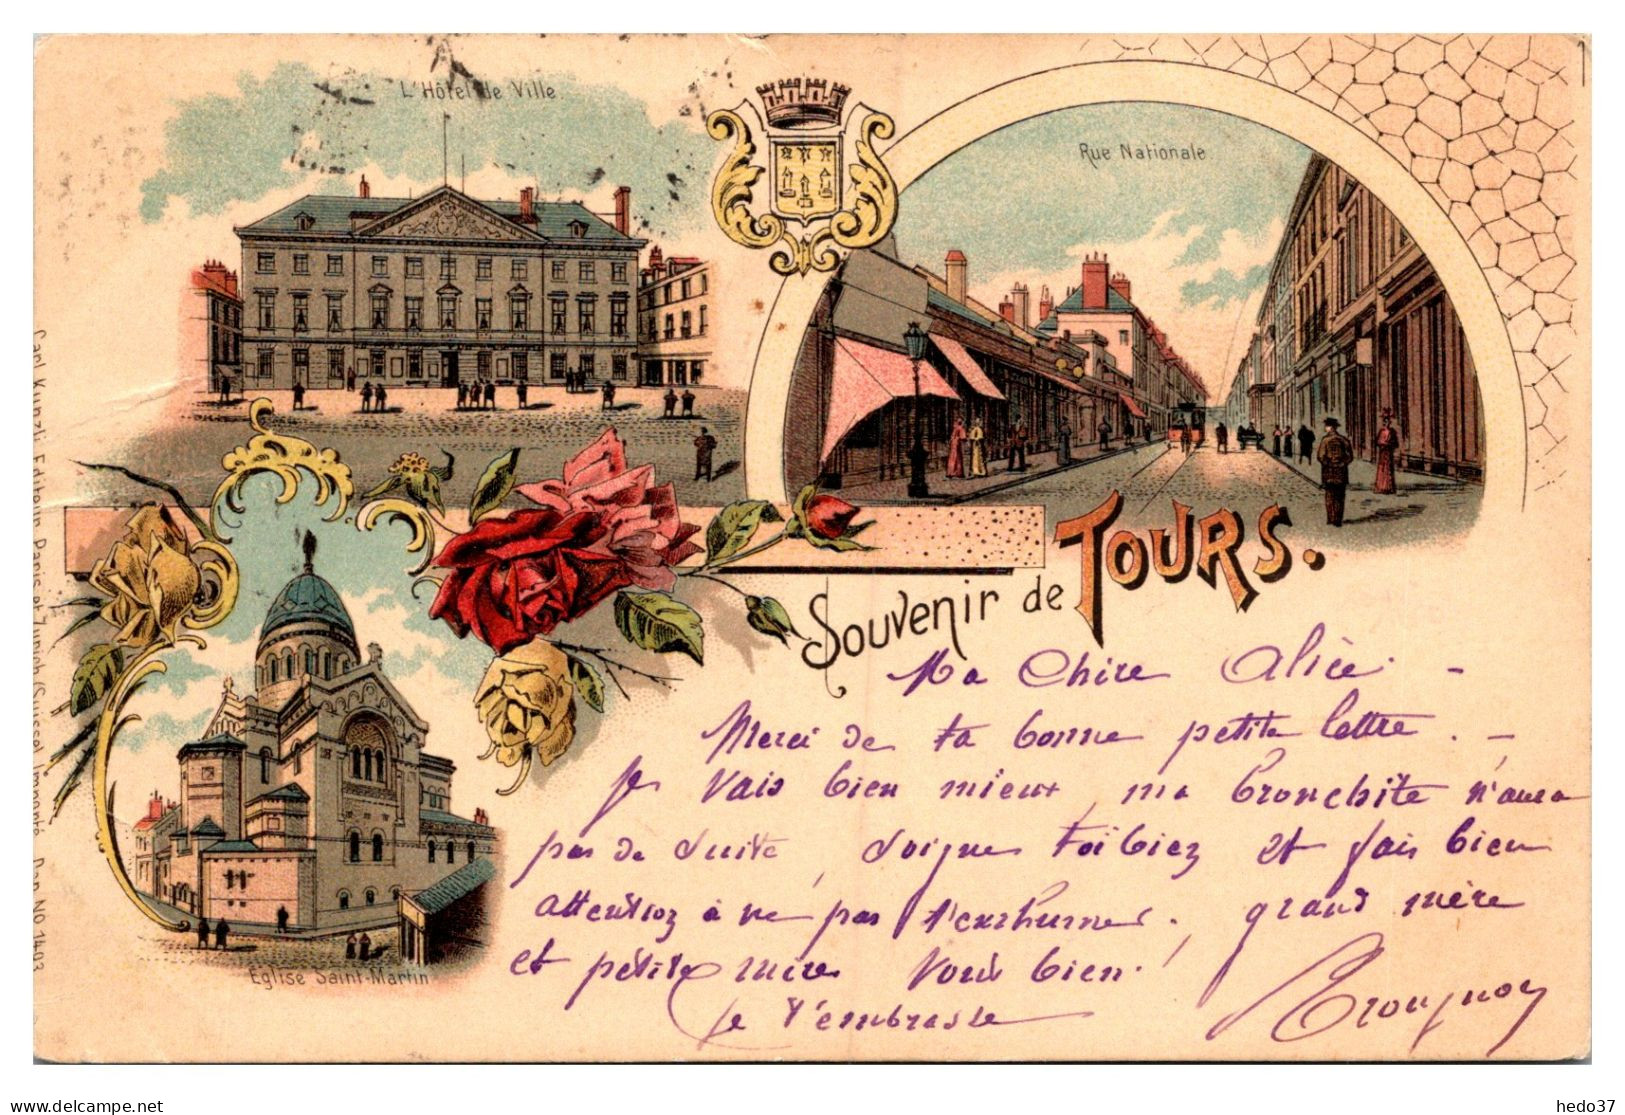 L'Hôtel de Ville.
Rue Nationale.
Souvenir de TOURS.
Eglise Saint-Martin
Carl Künzli, Editeur, Paris et Zurich (Suisse). Importé. Dep. No. 1403
Ma Chère Alice. -
Merci de ta bonne petite lettre. -
Je vais bien mieux, ma bronchite n'aura
pas de suite, soigne toi biez et fais bien
attention à ne pas t'enrhumer. grand mère
et petite mère vont bien!
Je t'embrasse
delcampe.net
hedo37